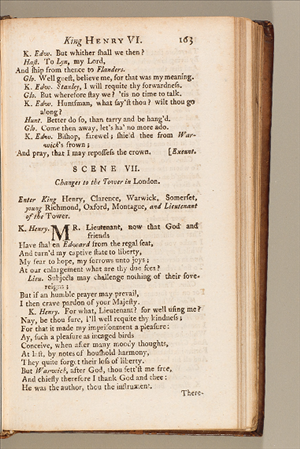 King HENRY VI. 163
K. Edw. But whither shall we then?
Hast. To Lyn, my Lord,
And ship from thence to Flanders.
Glo. Well guest, believe me, for that was my meaning.
K. Edw. Stanley, I will requite thy forwardness.
Glo. But wherefore stay we? 'tis no time to talk.
K. Edw. Huntsman, what say'st thou? wilt thou go
along?
Hunt. Better do so, than tarry and be hang'd.
Glo. Come then away, let's ha' no more ado.
K. Edw. Bishop, farewel; shield thee from War-
wick's frown;
And pray, that I may repossess the crown. [Exeunt.
SCENE VII.
Changes to the Tower in London.
Enter King Henry, Clarence, Warwick, Somerset,
young Richmond, Oxford, Montague, and Lieutenant
of the Tower.
K. Henry. MR. Lieutenant, now that God and
friends
Have shak'n Edward from the regal seat,
And turn'd my captive state to liberty,
My fear to hope, my sorrows unto joys;
At our enlargement what are thy due fees?
Lieu. Subjects may challenge nothing of their sove-
reigns;
But if an humble prayer may prevail,
I then crave pardon of your Majesty.
K. Henry. For what, Lieutenant? for well using me?
Nay, be thou sure, I'll well requite thy kindness;
For that it made my imprisonment a pleasure:
Ay, such a pleasure as incaged birds
Conceive, when after many moody thoughts,
At last, by notes of houshold harmony,
They quite forget their loss of liberty.
But Warwick, after God, thou sett'st me free,
And chiefly therefore I thank God and thee:
He was the author, thou the instrument.
There-